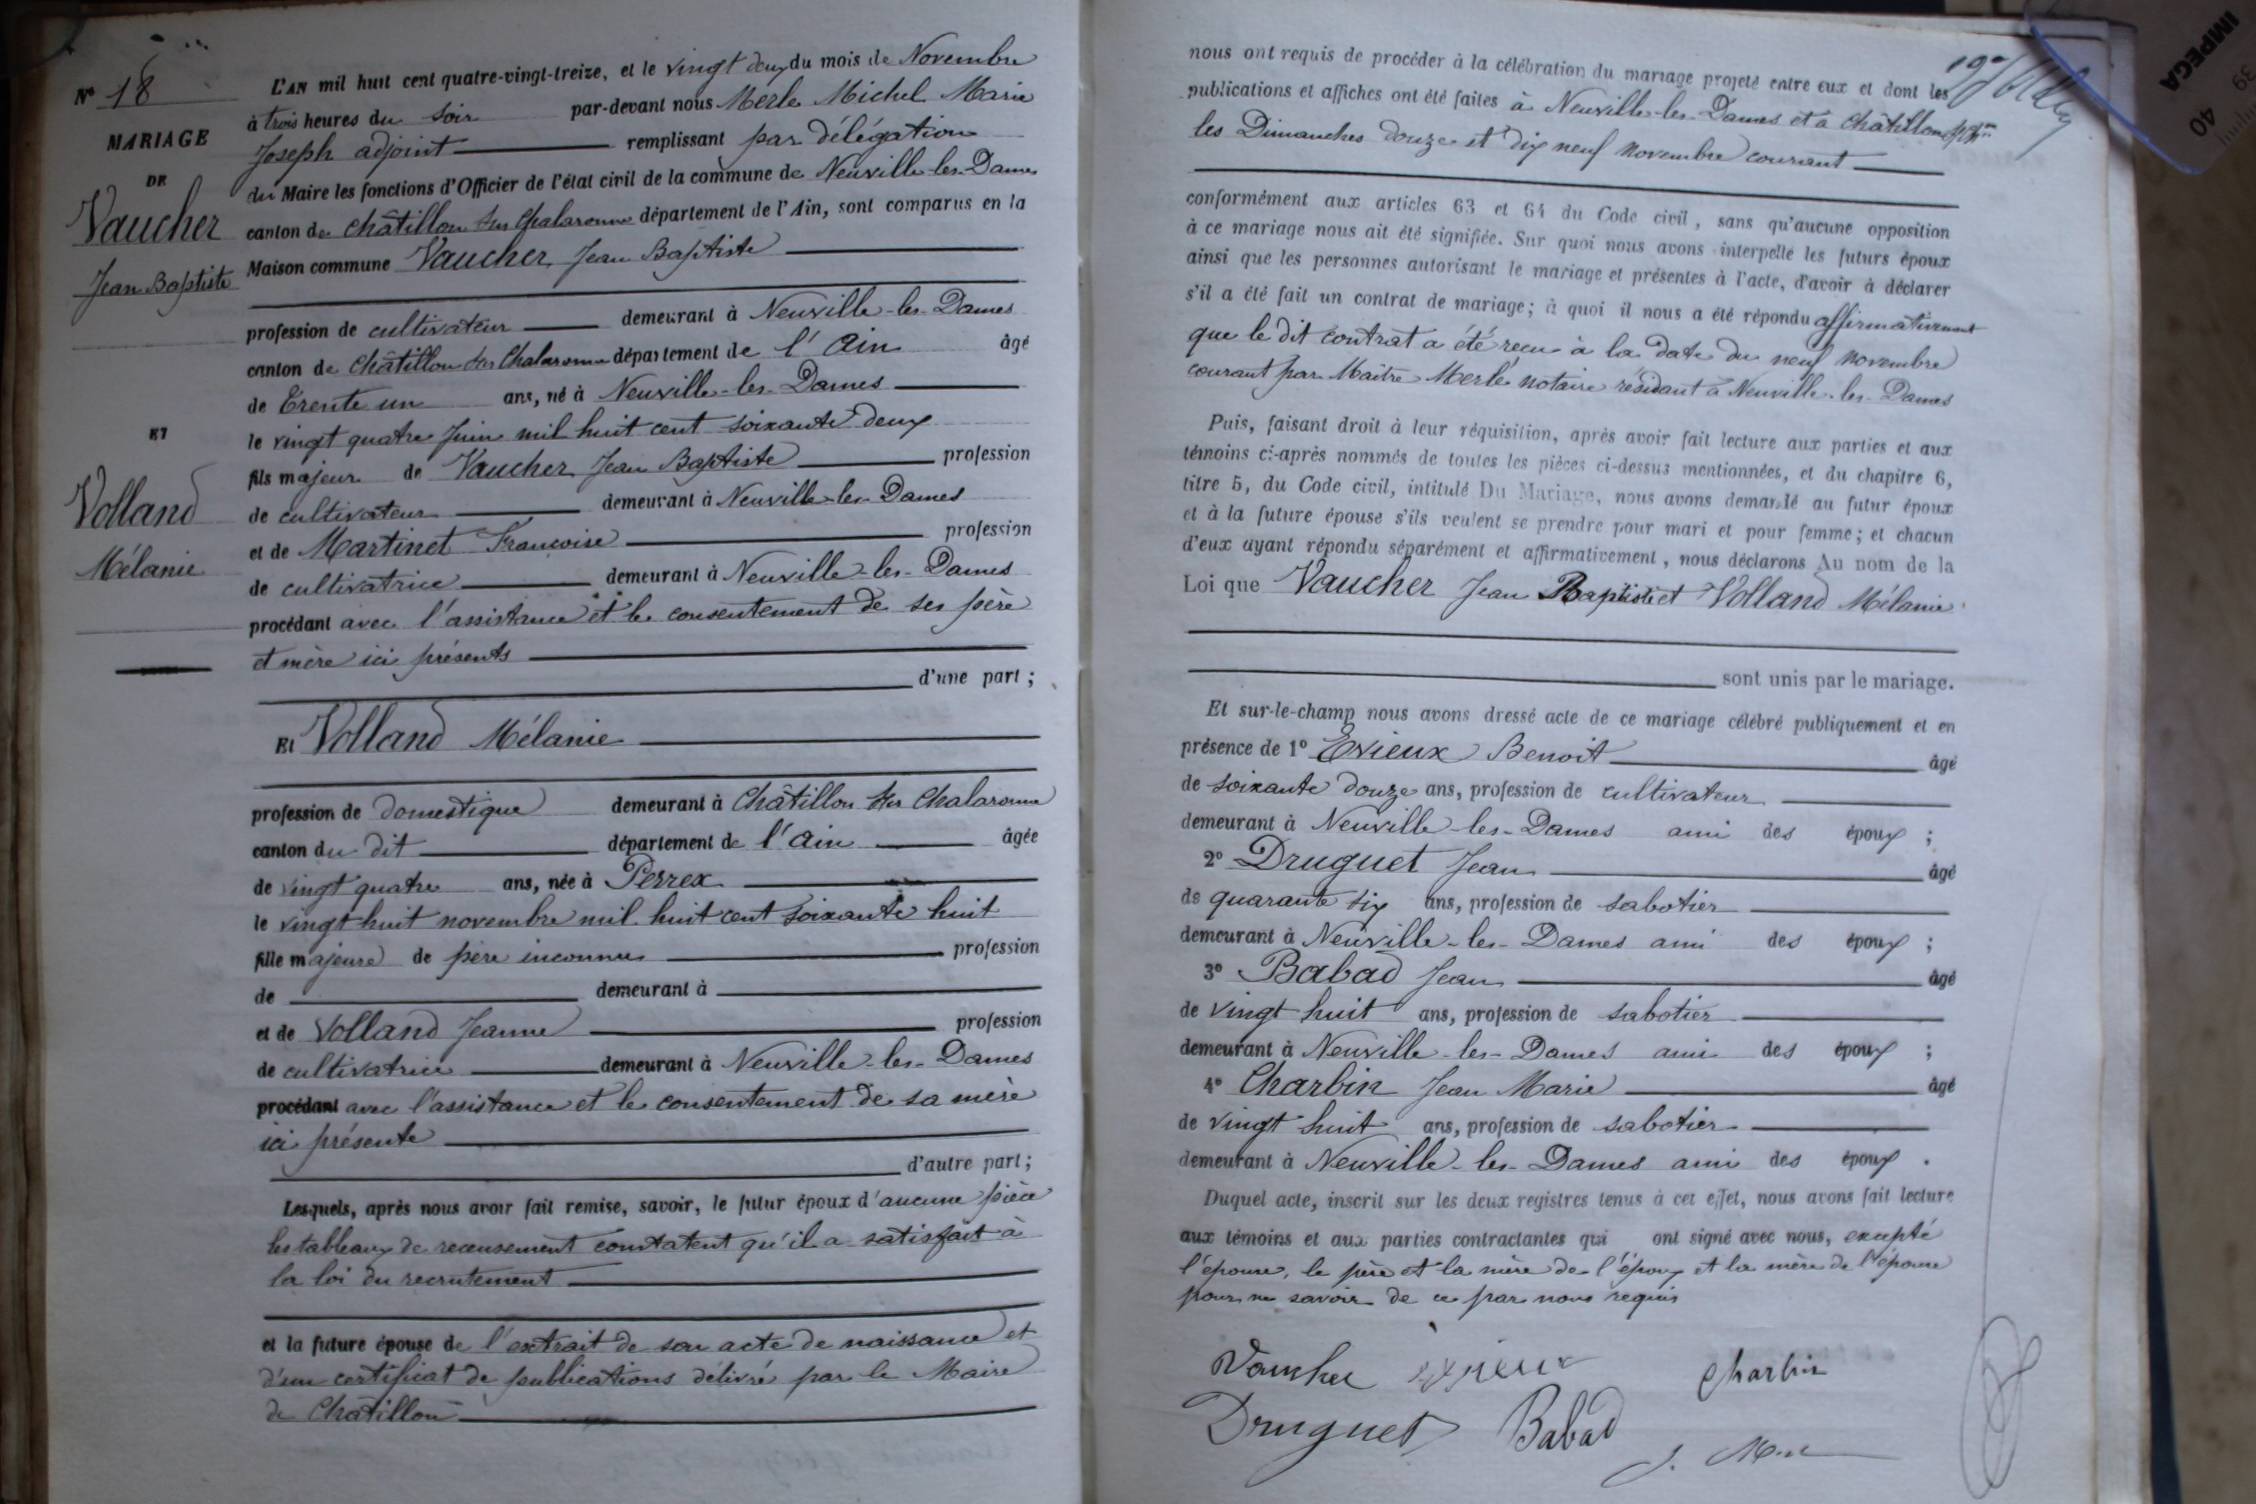 Nº 18
MARIAGE
DE
Vaucher
Jean Baptiste
ET
Volland
Mélanie
L'AN mil huit cent quatre-vingt-treize, et le vingt deux du mois de Novembre
à trois heures du soir par-devant nous Merle Michel Marie
Joseph adjoint remplissant par délégation
du Maire les fonctions d'Officier de l'état civil de la commune de Neuville-les-Dames
canton de Châtillon sur Chalaronne département de l'Ain, sont comparus en la
Maison commune Vaucher Jean Baptiste
profession de cultivateur demeurant à Neuville-les-Dames
canton de Châtillon sur Chalaronne département de l'Ain âgé
de trente un ans, né à Neuville-les-Dames
le vingt quatre Juin mil huit cent soixante deux
fils majeur de Vaucher Jean Baptiste profession
de cultivateur demeurant à Neuville-les-Dames
et de Martinet Françoise profession
de cultivatrice demeurant à Neuville-les-Dames
procédant avec l'assistance et le consentement de ses père
et mère ici présents
d'une part ;
Et Volland Mélanie
profession de domestique demeurant à Châtillon sur Chalaronne
canton du dit département de l'Ain âgée
de vingt quatre ans, née à Perrex
le vingt huit novembre mil huit cent soixante huit
fille majeure de père inconnu profession
de demeurant à
et de Volland Jeanne profession
de cultivatrice demeurant à Neuville-les-Dames
procédant avec l'assistance et le consentement de sa mère
ici présente
d'autre part ;
Lesquels, après nous avoir fait remise, savoir, le futur époux d'aucune pièce
les tableaux de recensement constatent qu'il a satisfait à
la loi du recrutement
et la future épouse de l'extrait de son acte de naissance et
d'un certificat de publications délivré par le Maire
de Châtillon
nous ont requis de procéder à la célébration du mariage projeté entre eux et dont les
publications et affiches ont été faites à Neuville-les-Dames et à Châtillon
les Dimanches douze et dix neuf novembre courant
conformément aux articles 63 et 64 du Code civil, sans qu'aucune opposition
à ce mariage nous ait été signifiée. Sur quoi nous avons interpellé les futurs époux
ainsi que les personnes autorisant le mariage et présentes à l'acte, d'avoir à déclarer
s'il a été fait un contrat de mariage; à quoi il nous a été répondu affirmativement
que le dit contrat a été reçu à la date du neuf novembre
courant par Maître Merle notaire résidant à Neuville-les-Dames
Puis, faisant droit à leur réquisition, après avoir fait lecture aux parties et aux
témoins ci-après nommés de toutes les pièces ci-dessus mentionnées, et du chapitre 6,
titre 5, du Code civil, intitulé Du Mariage, nous avons demandé au futur époux
et à la future épouse s'ils veulent se prendre pour mari et pour femme ; et chacun
d'eux ayant répondu séparément et affirmativement, nous déclarons Au nom de la
Loi que Vaucher Jean Baptiste et Volland Mélanie
sont unis par le mariage.
Et sur-le-champ nous avons dressé acte de ce mariage célébré publiquement et en
présence de 1º Evieux Benoit âgé
de soixante douze ans, profession de cultivateur
demeurant à Neuville-les-Dames ami des époux ;
2º Druguet Jean âgé
de quarante six ans, profession de sabotier
demeurant à Neuville-les-Dames ami des époux ;
3º Babad Jean âgé
de vingt huit ans, profession de sabotier
demeurant à Neuville-les-Dames ami des époux ;
4º Charbin Jean Marie âgé
de vingt huit ans, profession de sabotier
demeurant à Neuville-les-Dames ami des époux .
Duquel acte, inscrit sur les deux registres tenus à cet effet, nous avons fait lecture
aux témoins et aux parties contractantes qui ont signé avec nous, excepté
l'épouse, le père et la mère de l'époux et la mère de l'épouse
pour ne savoir de ce par nous requis
Vaucher Evieux Charbin
Druguet Babad
IMPEGA
39
40